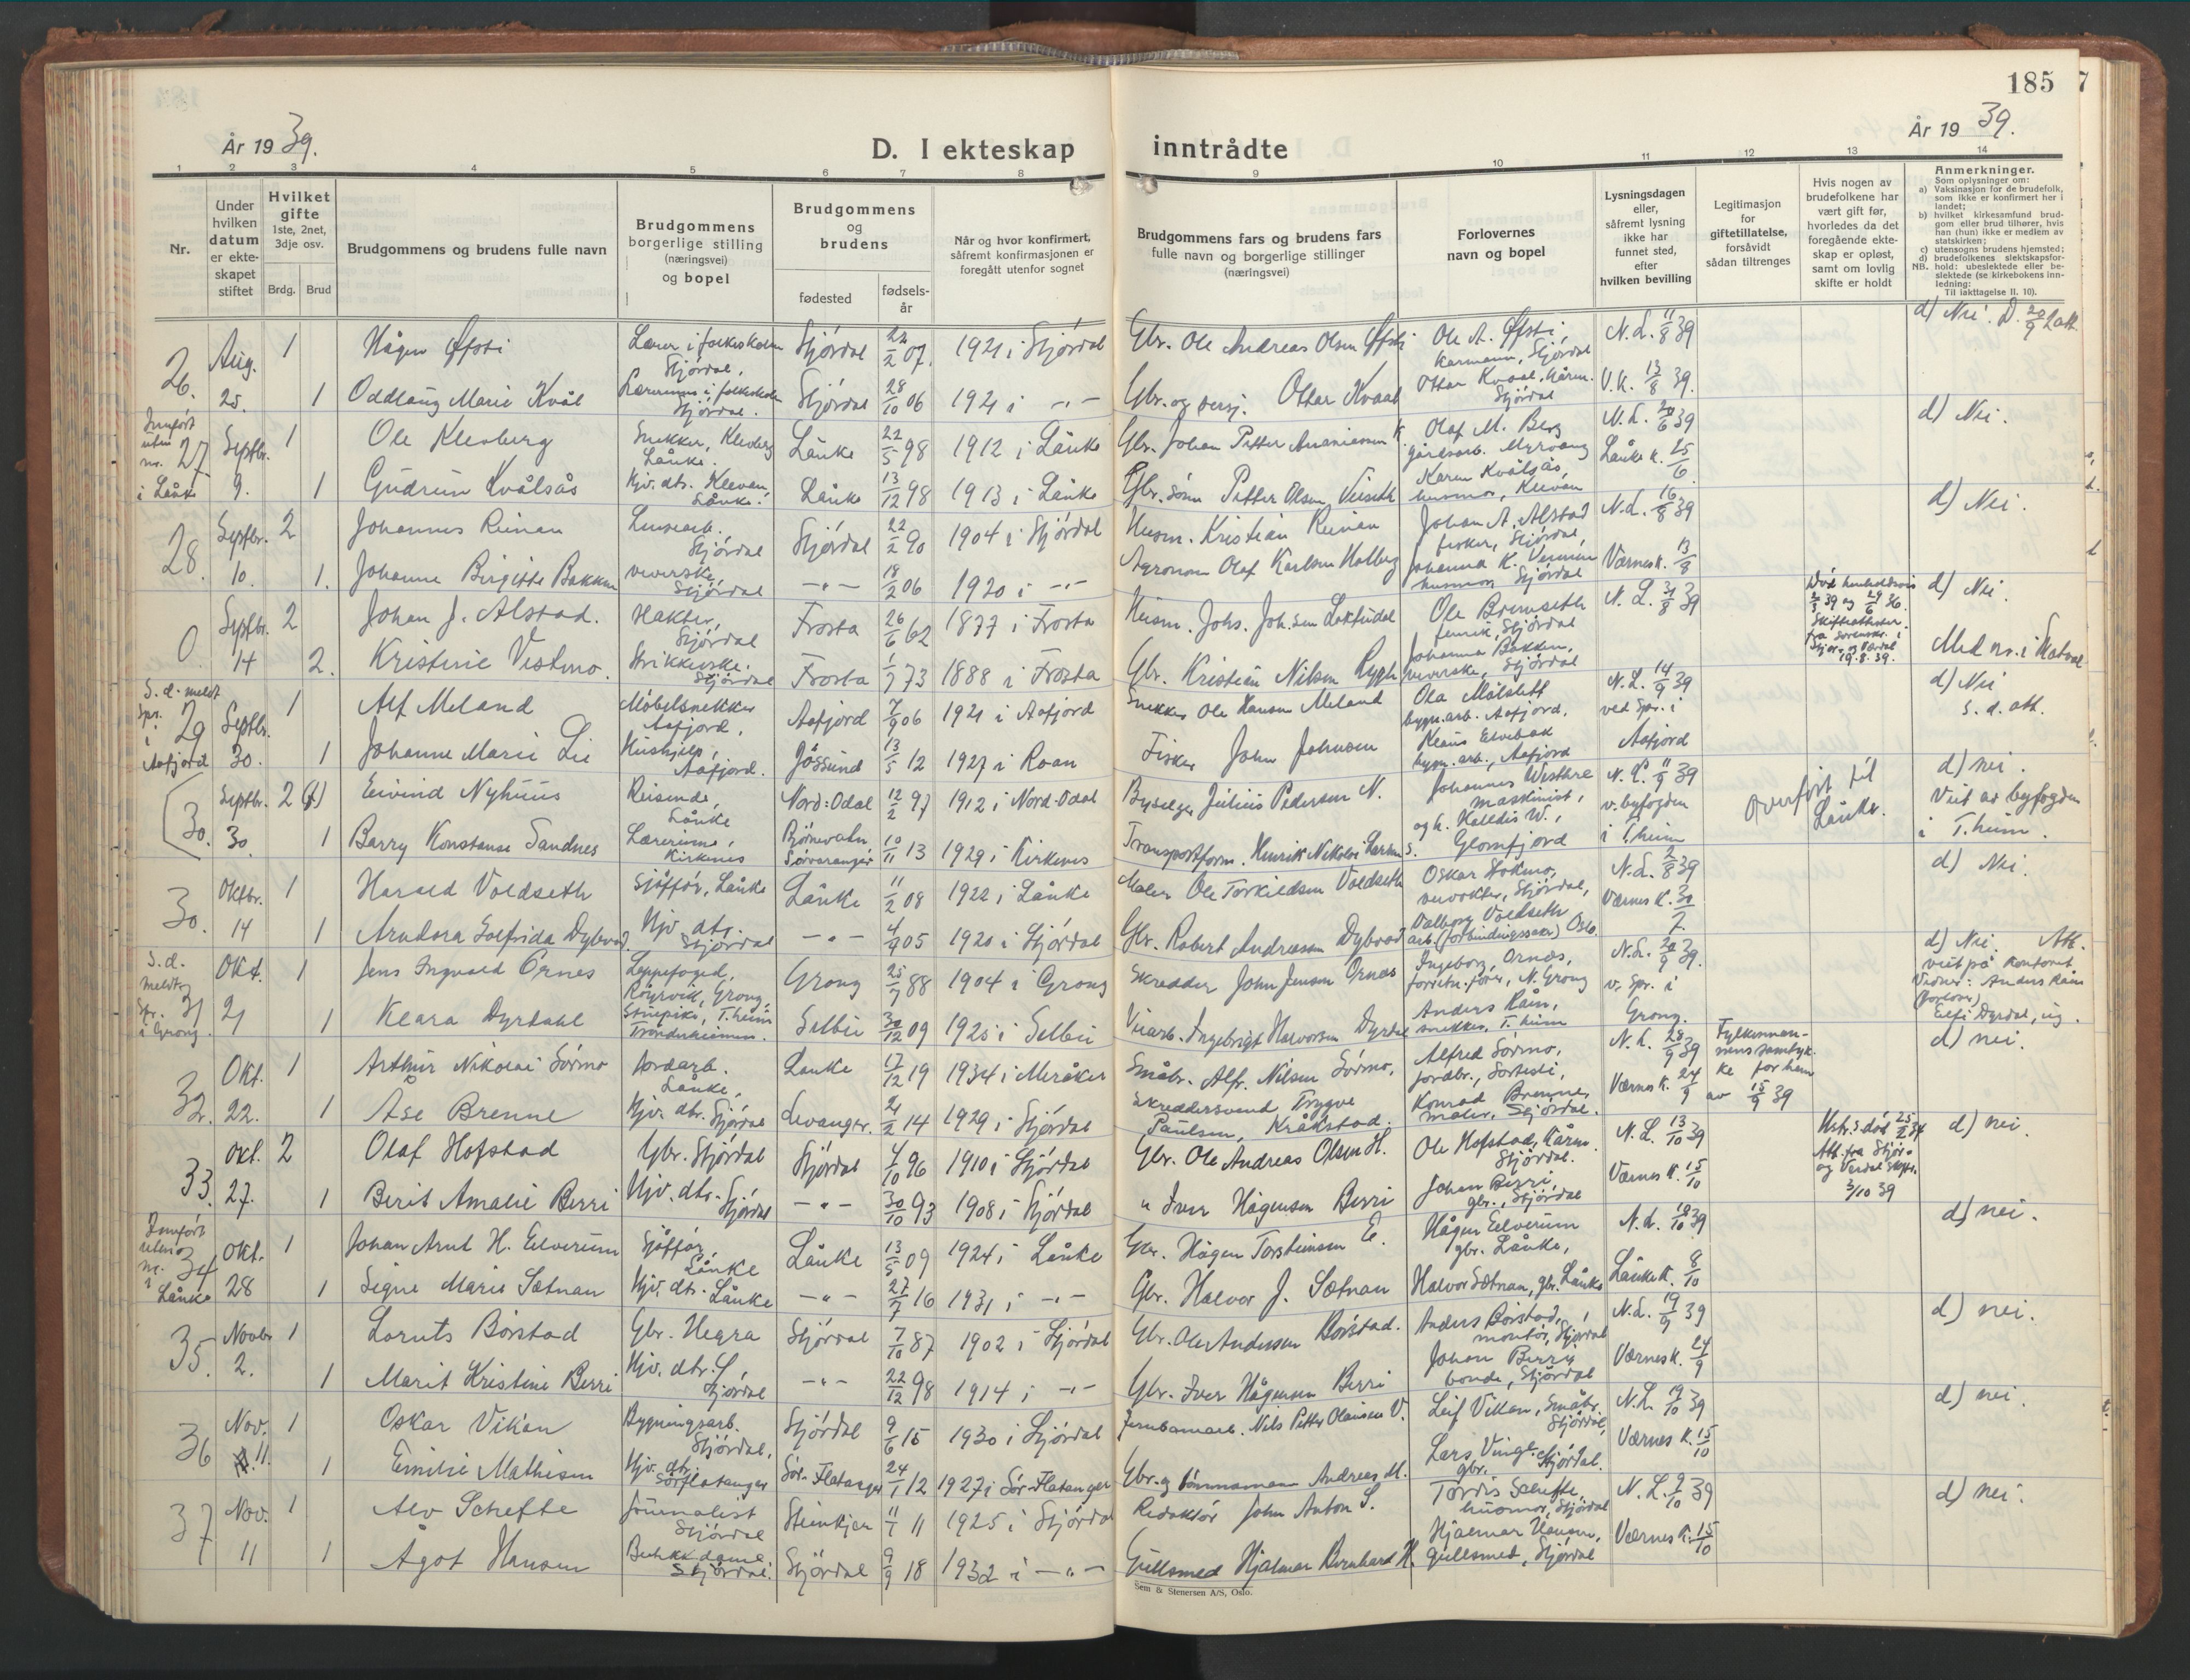 185
År 1939.
D. I ekteskap inntrådte
År 1939.
1 2 3 4 5 6 7 8 9 10 11 12 13 14
Nr.
Under hvilken datum er ekteskapet stiftet
Hvilket gifte 1ste, 2net, 3dje osv.
Brdg. Brud
Brudgommens og brudens fulle navn
Brudgommens borgerlige stilling (næringsvei) og bopel
Brudgommens og brudens
fødested
fødselsår
Når og hvor konfirmert, såfremt konfirmasjonen er foregått utenfor sognet
Brudgommens fars og brudens fars fulle navn og borgerlige stillinger (næringsvei)
Forlovernes navn og bopel
Lysningsdagen eller, såfremt lysning ikke har funnet sted, efter hvilken bevilling
Legitimasjon for giftetillatelse, forsåvidt sådan tiltrenges
Hvis nogen av brudefolkene har vært gift før, hvorledes da det foregående ekteskap er opløst, samt om lovlig skifte er holdt
Anmerkninger.
Som oplysninger om:
a) Vaksinasjon for de brudefolk, som ikke er konfirmert her i landet;
b) hvilket kirkesamfund brudgom eller brud tilhører, hvis han (hun) ikke er medlem av statskirken;
c) utensogns brudens hjemsted;
d) brudefolkenes slektskapsforhold: ubeslektede eller beslektede (se kirkebokens innledning:
NB.
Til iakttagelse II. 10).
26. Aug. 25. 1 Hågen Øfsti Lærer i folkeskolen Stjørdal, Stjørdal 22/2 07. 1921 i Stjørdal Gbr. Ole Andreas Olsen Øfsti Ole A. Øfsti, Stjørdal N.L. 11/8 39 d) Nei.
1 Oddlaug Marie Kvål Lærerinne i folkeskolen Stjørdal. Stjørdal 28/10 06 1921 i -"- Gbr. og Ottar Kvaal Ottar Kvaal, Stjørdal V.K. 13/8 39.
Innført uten nr. i Lånke 27 Septbr. 9. 1 Ole Klevberg Snekker, Klevberg Lånke. Lånke 22/5 98 1912 i Lånke Gbr. Johan Petter K. Olaf M. Berg gårdsarb. Myrvang N.L. 20/6 39 d) Nei.
1 Gudrun Kvålsås Hjv. dtr. Klevan Lånke. Lånke 13/12 98 1913 i Lånke Gbr. sønn Petter Olsen Karen Kvålsås, husmor, Klevan Lånke k. 25/6
28. Septbr. 10. 2 Johannes Reinan Stjørdal Stjørdal 22/2 90 1904 i Stjørdal Husm. Kristian Reinan Johan A. Alstad fisker, Stjørdal, N.L. 16/8 39 d) Nei.
1. Johanne Birgitte Bakken veverske, Stjørdal -"- 18/2 06 1920 i -"- Agronom Olaf Karlsen Johanna K. husmor, Stjørdal Værnes k. 13/8
0 Septbr. 14 2 Johan J. Alstad. Stjørdal Frosta 26/6 62 1877 i Frosta Husm. Johs. Joh.sen Ole Bremseth Stjørdal N.L. 31/8 39 d) Nei.
2. Kristine Vestmo. Strikkerske. Stjørdal Frosta 1/7 73 1888 i Frosta Gbr. Kristian Nilsen Rygh Johanna Bakken, veverske, Stjørdal
S. d. meldt Spr. i Aafjord 29 Septbr. 30. 1 Alf Meland Møbelsnekker Aafjord, Aafjord 7/9 06 1921 i Aafjord Snekker Ole Hansen Meland Ola Målslett bygn.arb. Aafjord. N.L. 14/9 39 ved Spr. i Aafjord d) Nei S. d. att.
1 Johanne Marie Lie Hushjelp, Aafjord. Jøssund 13/5 12 1927 i Roan Fisker John Johnsen Klaus Elvebak bygn. arb., Aafjord
(30. Septbr. 30. 2 Eivind Nyhuus Reisende, Lånke Nord-Odal 12/2 97 1912 i Nord-Odal Julius Pedersen N. Johannes Westhre maskinist, og h. Halldis W., Glomfjord N.L. 11/9 39 v. byfogden i T.heim Overført til Lånke. d) nei. Viet av byfogden i T.heim.
1 Barry Konstanse Sandnes Lærerinne, Kirkenes Bjørnevatn Sørvaranger 10/11 13 1929 i Kirkenes Transportform. Henrik Nikolai S.
30. Oktbr. 14 1 Harald Voldseth Sjåffør, Lånke Lånke 11/2 08 1922 i Lånke Maler Ole Torkildsen Voldseth Oskar Stokmo, Stjørdal, N.L. 2/8 39 d) Nei.
1 Arndora Solfrida Dybvad Hjv. dtr. Stjørdal -"- 4/9 05 1920 i Stjørdal Gbr. Robert Andreassen Dybvad Valborg Voldseth Oslo. Værnes K. 30/7
S. d. meldt Spr. i Grong. 31 Okt. 21 1 Jens Ingvald Ørnes Lappefoged, Røyrvik, Grong, Grong 25/7 88 1904 i Grong Skredder John Jensen Ornæs Ingeborg Ornæs, N. Grong N.L. 20/9 39. v. Spr. i Grong. d) Nei. Att. viet på kontoret
1 Klara Dyrdahl T.heim Selbu 30/12 09 1925 i Selbu Ingebrigt Halvorsen Dyrdal Anders Råen, snekker, T.heim
32. Okt. 22. 1 Arthur Nikolai Sørmo Jordarb. Lånke, Lånke 17/12 19 1934 i Meråker Småbr. Alfr. Nilsen Sørmo, Alfred Sørmo, jordbr., N.L. 28/9 39 Fylkesmannens samtykke for ham av 15/9 39 d) nei.
1 Åse Brenne Hjv. dtr. Stjørdal Levanger. 21/2 14 1929 i Stjørdal Skreddersvend Trygve Paulsen, Kråkstad. Konrad Brenne, maler, Stjørdal. Værnes K. 24/9
33. Okt. 27. 2 Olaf Hofstad Gbr. Stjørdal Stjørdal 4/10 96 1910 i Stjørdal Gbr. Ole Andreas Olsen H. Ole Hofstad, Stjørdal. N.L. 13/10 39 3/10 39 d) nei.
1 Berit Amalie Berri Hjv. dtr. Stjørdal -"- 30/10 93 1908 i Stjørdal " Iver Hågensen Berri Johan Berri, gbr., Stjørdal Værnes K. 15/10
Innført uten nr. i Lånke 34 Okt. 28 1 Johan Arnt H. Elverum Sjåffør, Lånke Lånke 13/5 09 1924 i Lånke Gbr. Hågen Torsteinsen E. Hågen Elverum gbr. Lånke, N.L. 10/10 39 d) nei.
1 Signe Marie Sætnan Hjv. dtr. Lånke -"- 27/7 16 1931 i -"- Gbr. Halvor J. Sætnan Halvor Sætnan, gbr. Lånke Lånke K. 8/10
35. Novbr. 2. 1 Lornts Børstad Gbr. Hegra Stjørdal 7/10 87 1902 i Stjørdal Gbr. Ole Andersen Børstad. Anders Børstad, montør, Stjørdal N.L. 19/9 39 d) nei.
1 Marit Kristine Berri Hjv. dtr. Stjørdal -"- 22/12 98 1914 i -"- Gbr. Iver Hågensen Berri Johan Berri bonde, Stjørdal Værnes K. 24/9
36 Nov. 11. 1 Oskar Vikan Bygningsarb. Stjørdal, Stjørdal 9/6 15 1930 i Stjørdal Jernbanearb. Nils Petter Olausen V. Leif Vikan, Småbr. Stjørdal, N.L. 19/10 39 d) nei.
1 Emilie Mathisen Hjv. dtr. Sørflatanger Sør-Flatanger 24/1 12 1927 i Sør-Flatanger Gbr. og tømmermann Andreas M. Lars Vinge, gbr. Stjørdal. Værnes K. 15/10
37 Nov. 11 1 Alv Schefte Journalist Stjørdal Steinkjer 11/1 11 1925 i Stjørdal Redaktør John Anton S. Tordis Schefte husmor, Stjørdal N.L. 9/10 39 d) nei.
1 Ågot Hansen Butikkdame. Stjørdal. Stjørdal 9/9 18 1932 i -"- Gullsmed Hjalmar Bernhard H. Hjalmar Hansen, gullsmed, Stjørdal Værnes K. 15/10
Sem & Stenersen A/S, Oslo.